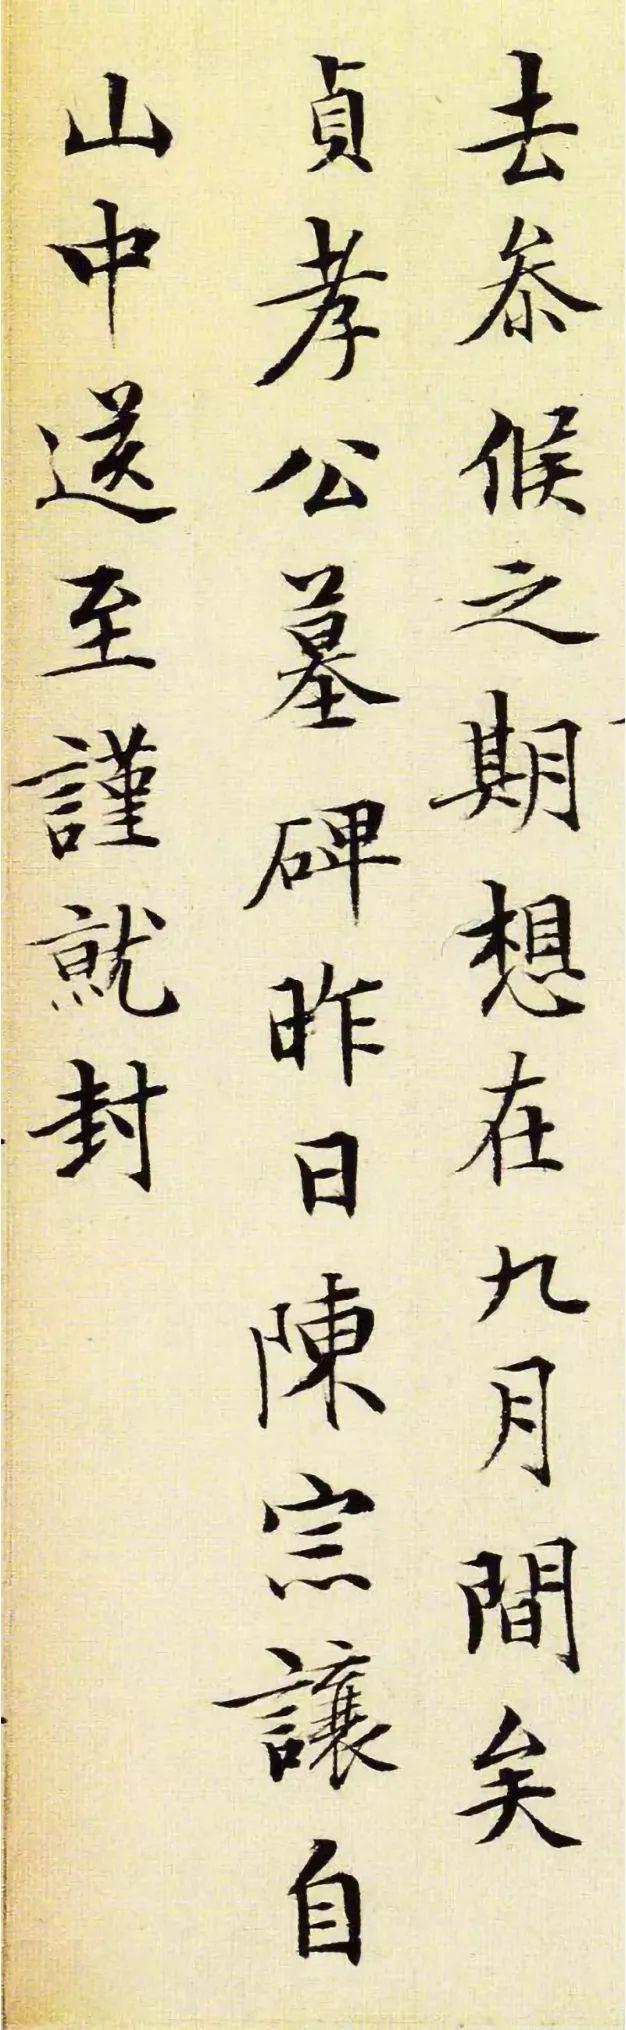 去叅候之期想在九月間矣
貞孝公墓碑昨日陳宗讓自
山中送至謹就封